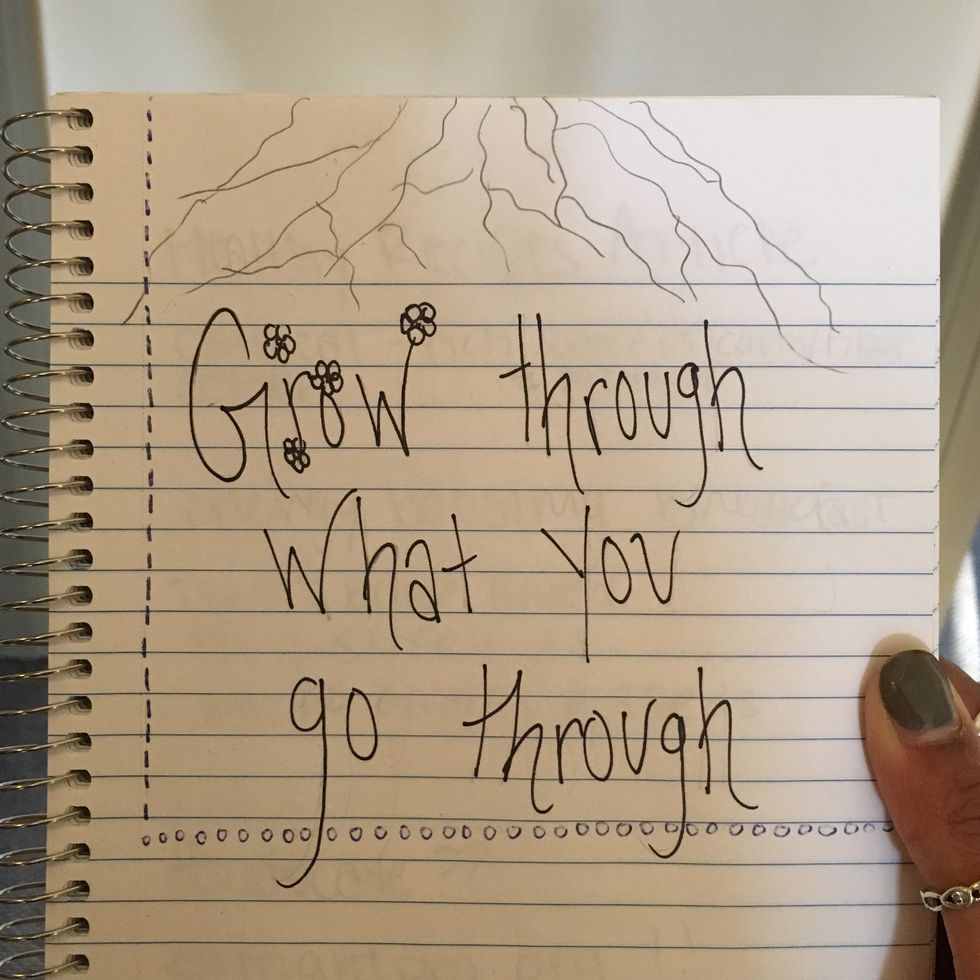 Grow through
what you
go through